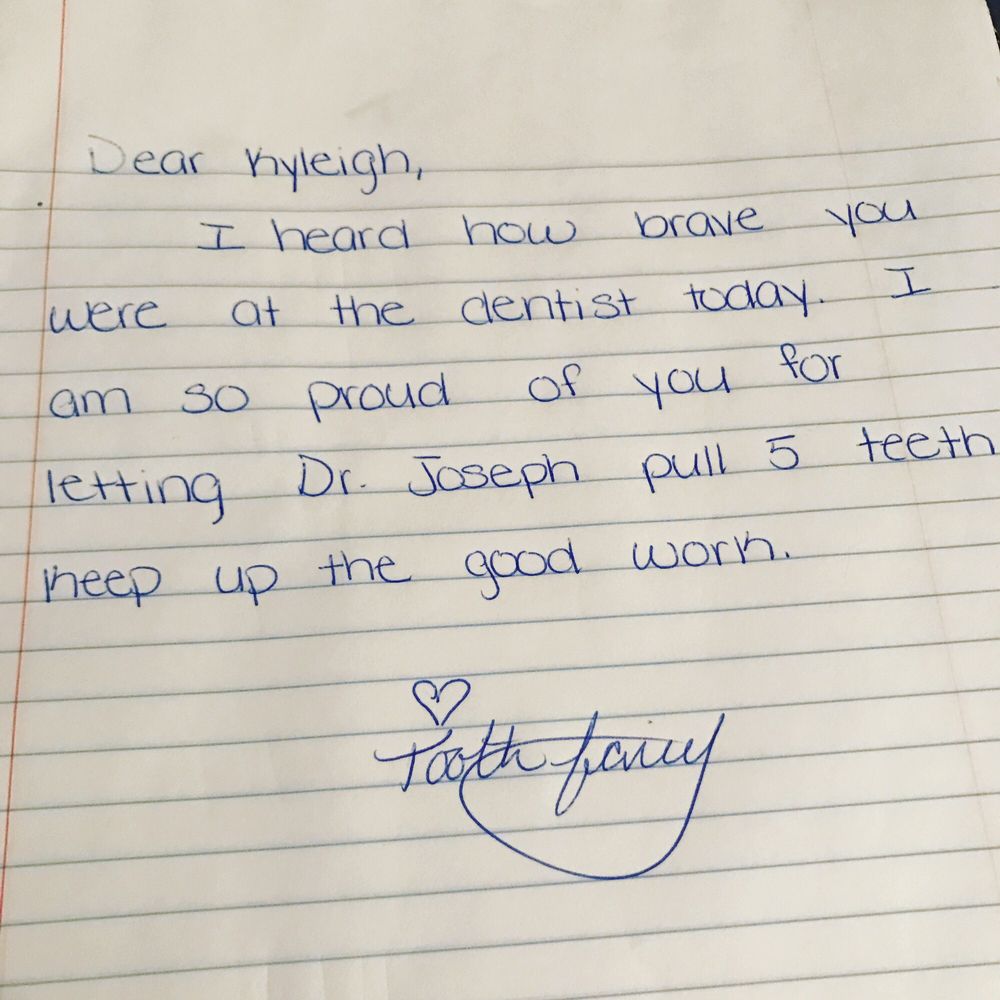 Dear Kyleigh,
I heard how brave you
were at the dentist today. I
am so proud of you for
letting Dr. Joseph pull 5 teeth
keep up the good work.
Tooth fairy